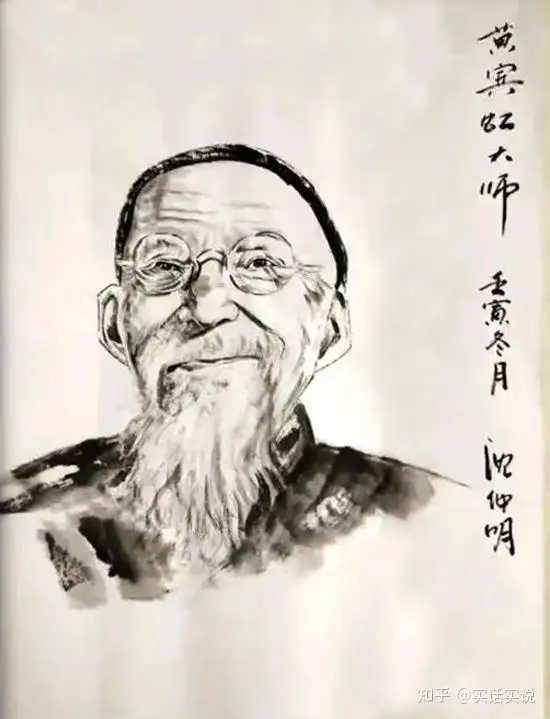 黄宾虹大师
壬寅冬月
沈仲明
知乎 @实话实说